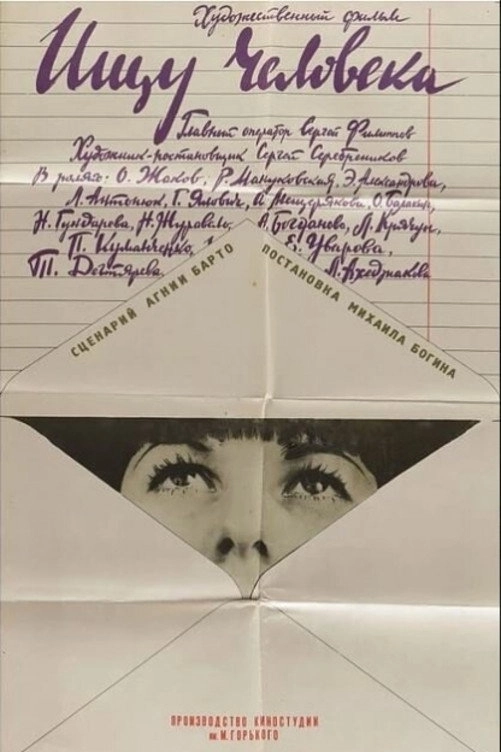 Художественный фильм
Ищу Человека
Главный оператор Сергей Филиппов
Художник-постановщик Сергей Серебреников
В ролях: О. Жаков, Р. Мануковская, Э. Александрова,
Л. Антонюк, Г. Ялович, А. Мещерякова, О.
Н. Гундарева, Н. Журавель, А. Богданова, Л. Крячун,
П. Кулманченко, Е. Уварова,
Т. Дегтярева, Л. Ахеджакова
СЦЕНАРИЙ АГНИИ БАРТО
ПОСТАНОВКА МИХАИЛА БОГИНА
ПРОИЗВОДСТВО КИНОСТУДИИ
ИМ. М. ГОРЬКОГО